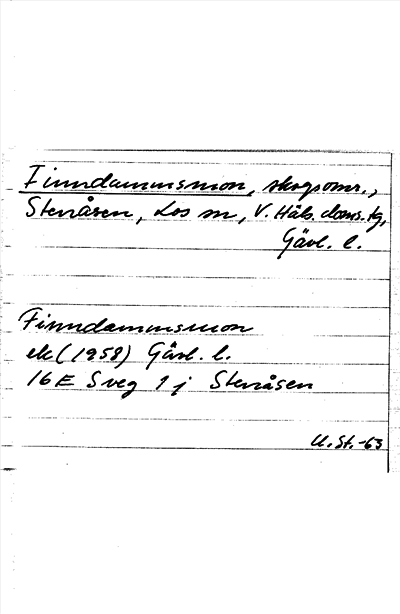 Finndammsmon, skogsomr.,
Stenåsen, Los sn, V. Häls. doms. tg,
Gävl. l.
Finndammsmon
ek (1958) Gävl. l.
16E Sveg 1 j Stenåsen
U. St. -63